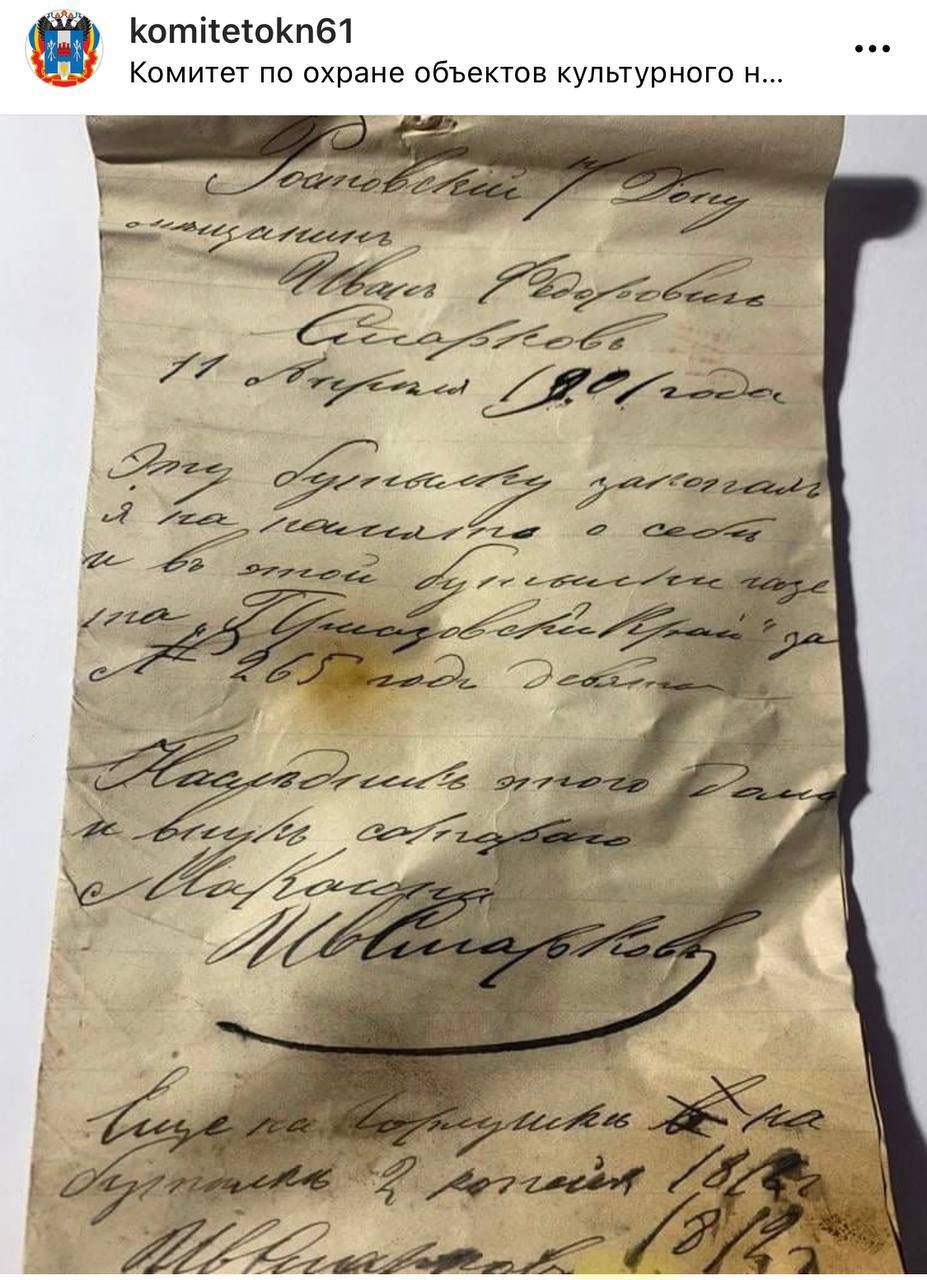 komitetokn61
Комитет по охране объектов культурного н...
Ростовскій н/Дону
мѣщанинъ
Иванъ Федоровичъ
Старковъ
11 Апреля 1901 года
Эту бутылку закопалъ
я на память о себѣ
и въ этой бутылки газе
та „Приазовскій Край" за
№ 265 годъ девято
Наслѣдникъ этого дома
и внукъ стараго
Макагона
ИвСтарковъ
Еще на горлушки на
бутылки 2 копейки
ИвСтарковъ